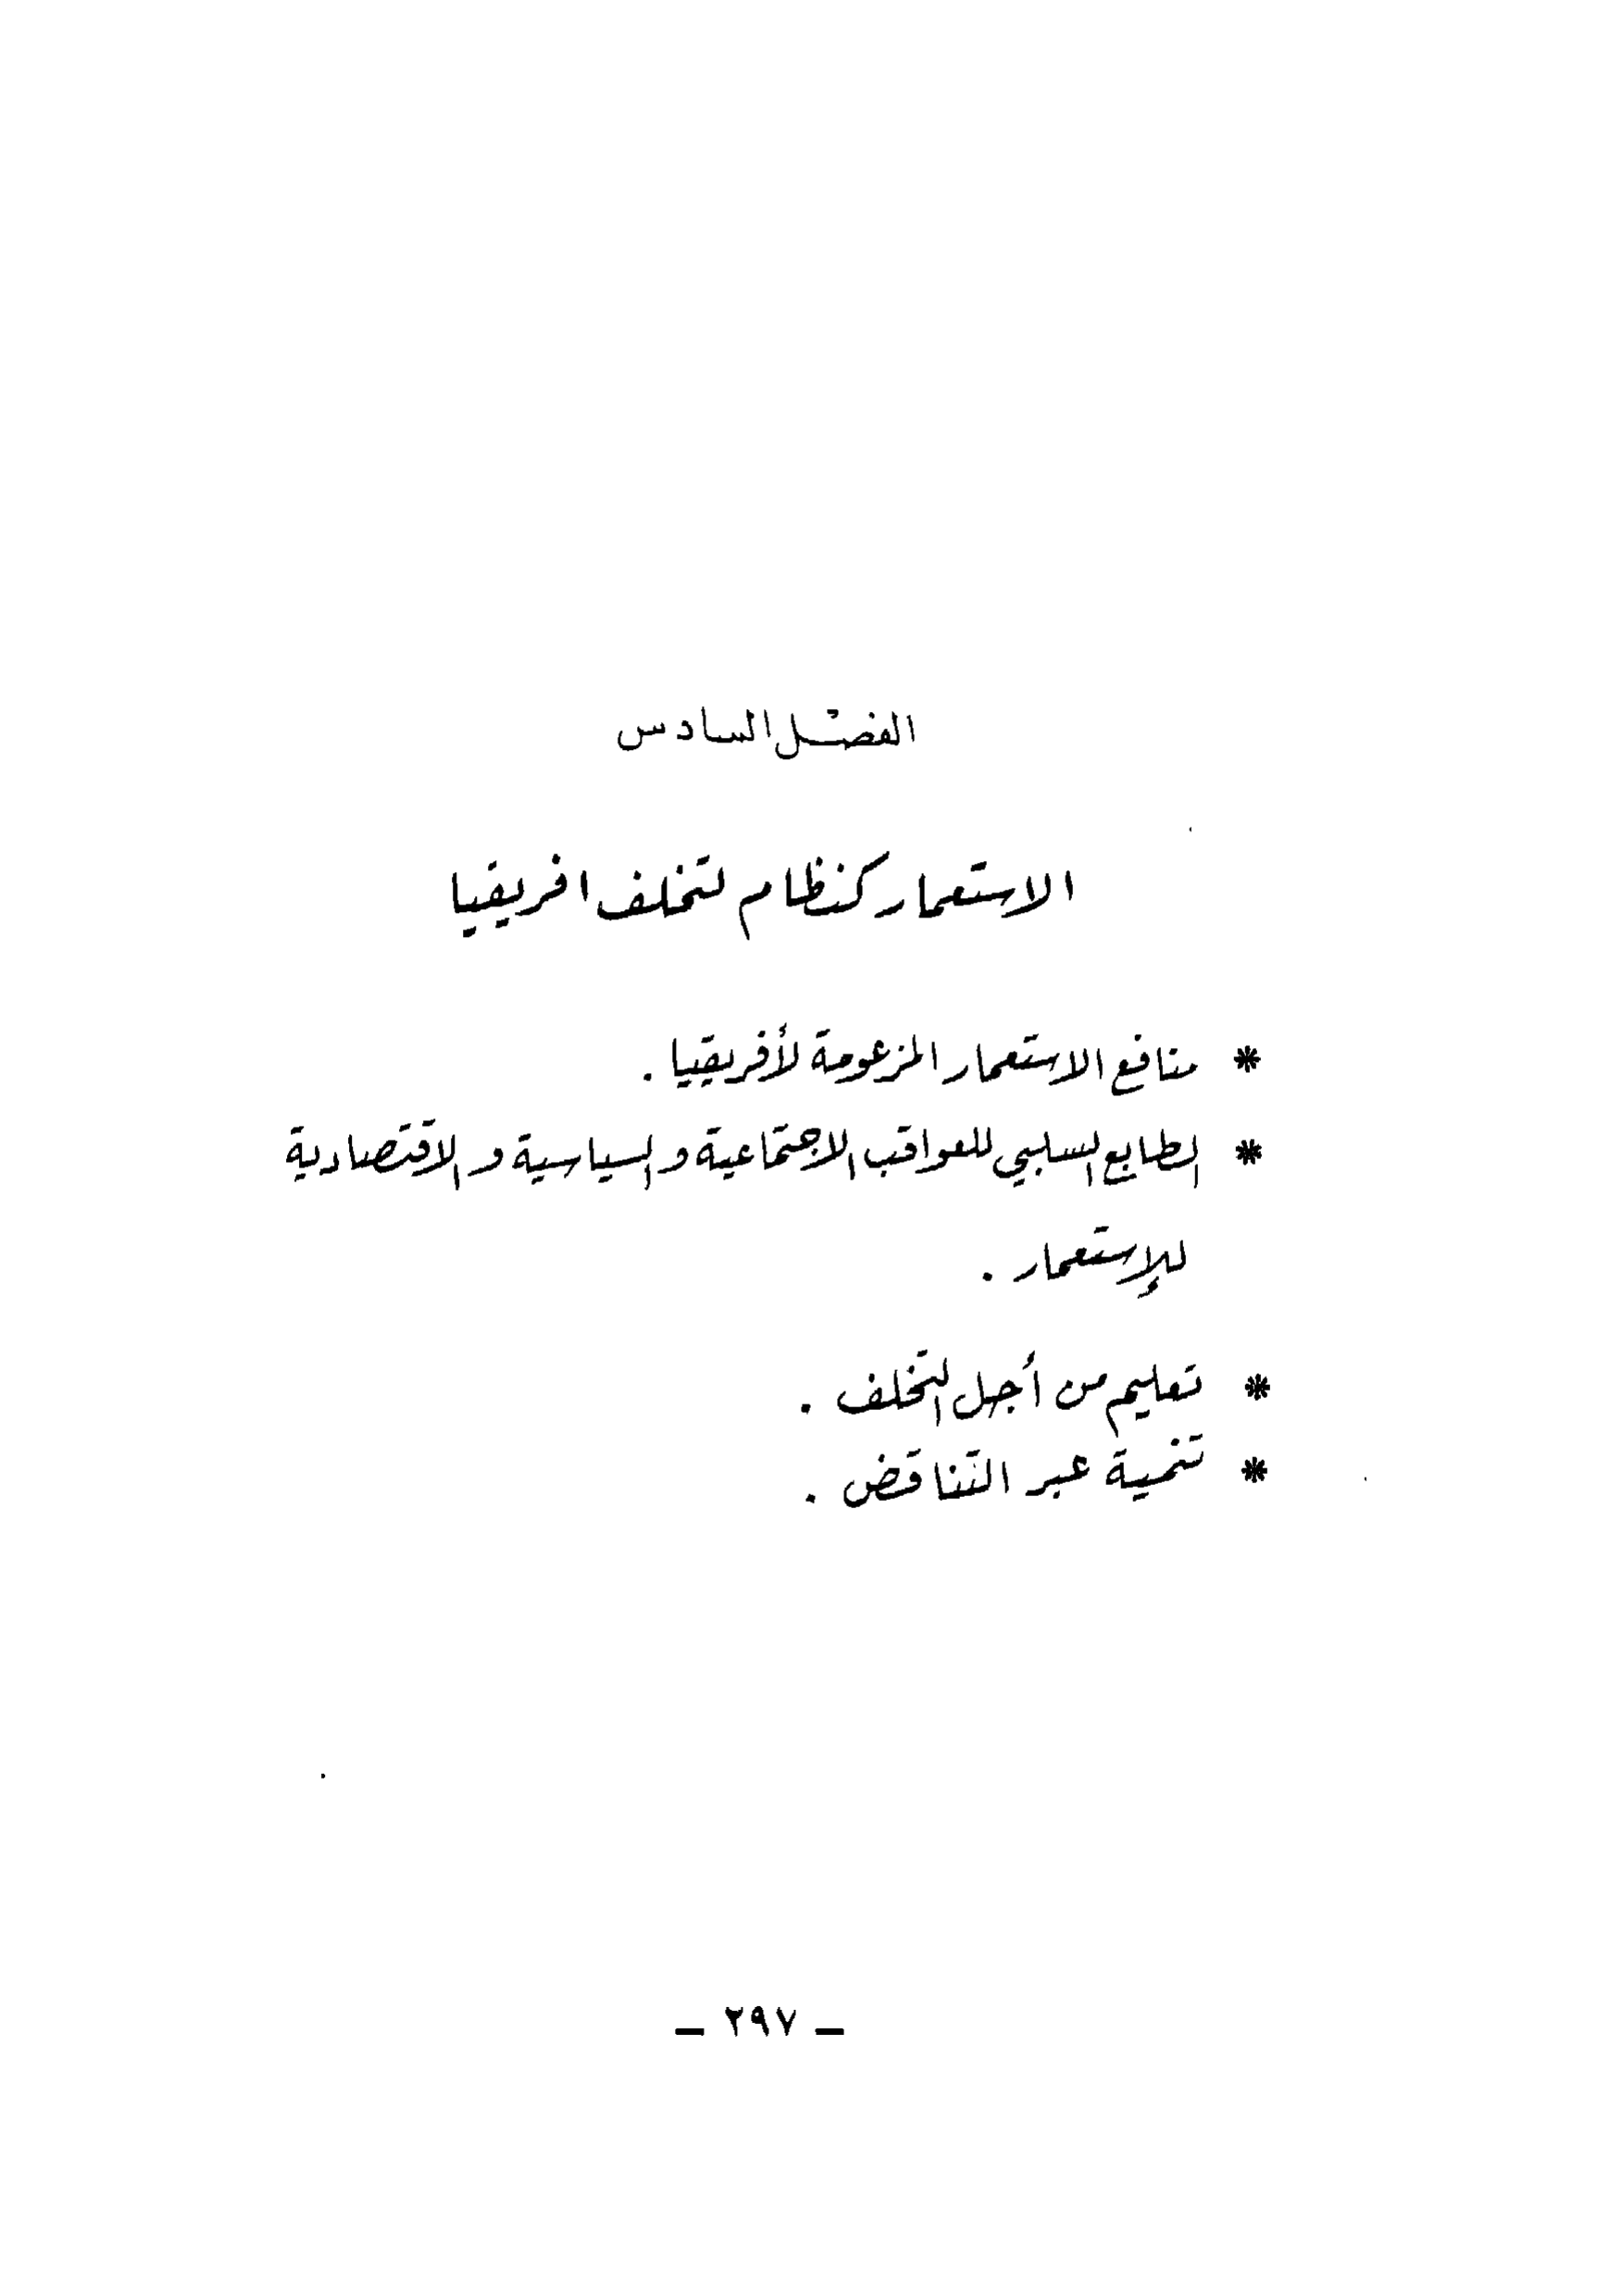 الفصل السادس
الاستعمار كنظام لتخلف افريقيا
* منافع الاستعمار المزعومة لأفريقيا .
* الطابع السلبي للعواقب الاجتماعية والسياسية والاقتصادية
للإستعمار .
* تعليم من أجل التخلف .
* تنمية عبر التناقض .
– ٢٩٧ –